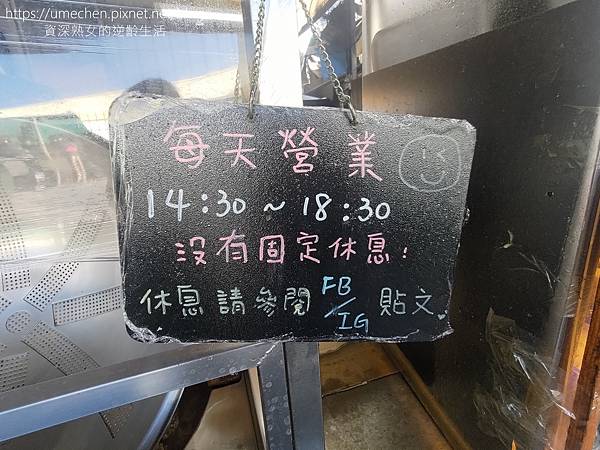 https://umechen.pixnet.ne
資深熟女的逆齡生活
每天營業
14:30~18:30
沒有固定休息!
休息請參閱FB/IG貼文